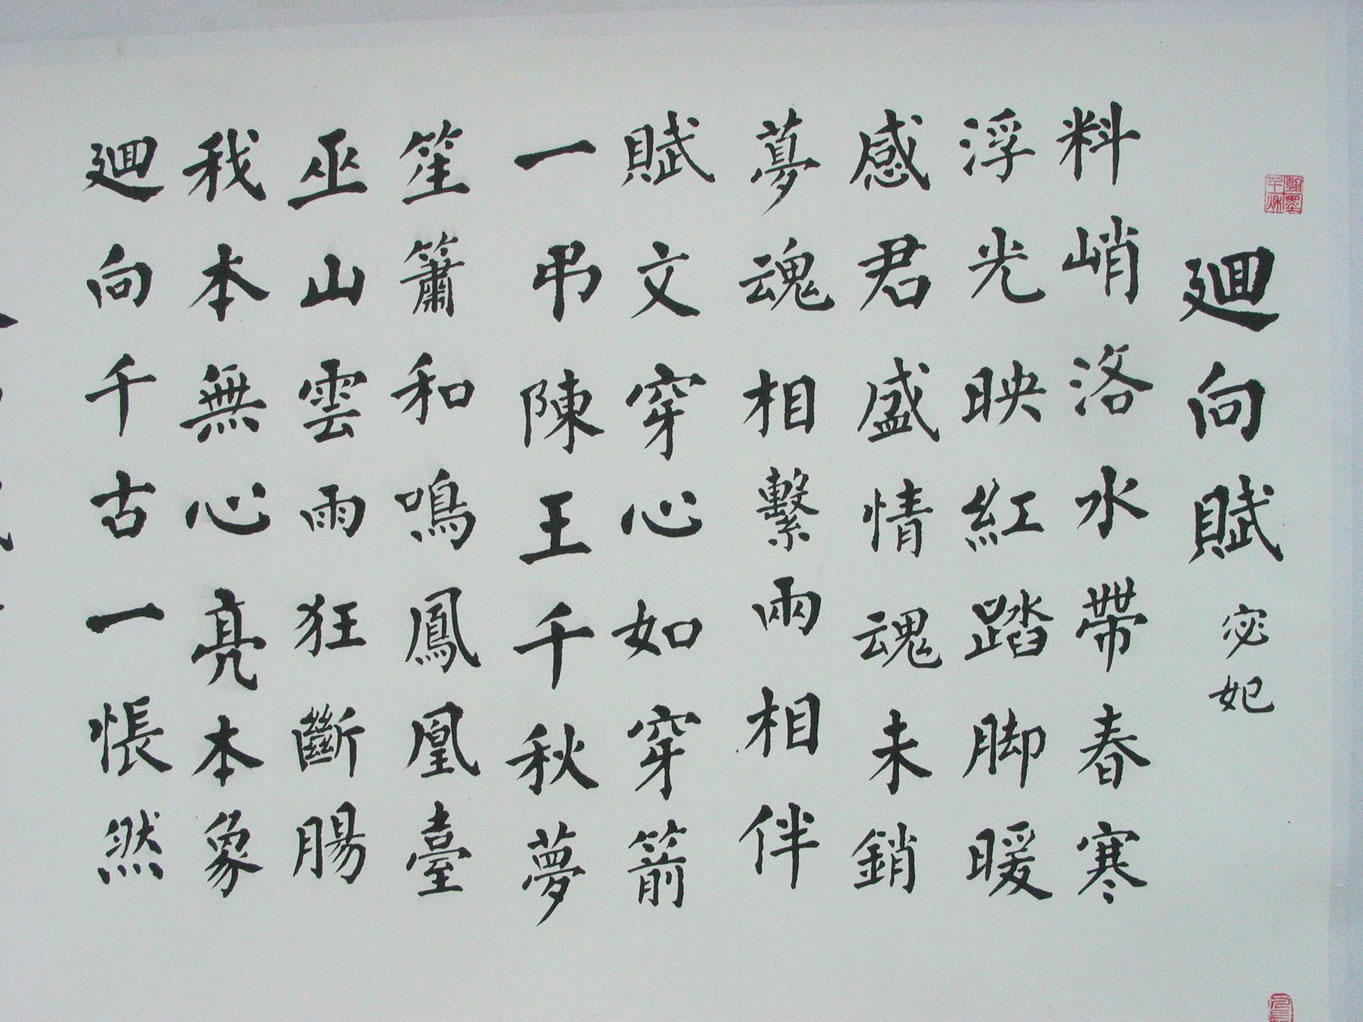 廻向賦
宓妃
料峭洛水帶春寒
浮光映紅踏脚暖
感君盛情魂未銷
夢魂相繫兩相伴
賦文穿心如穿箭
一弔陳王千秋夢
笙簫和鳴鳳凰臺
巫山雲雨狂斷腸
我本無心亮本象
廻向千古一悵然